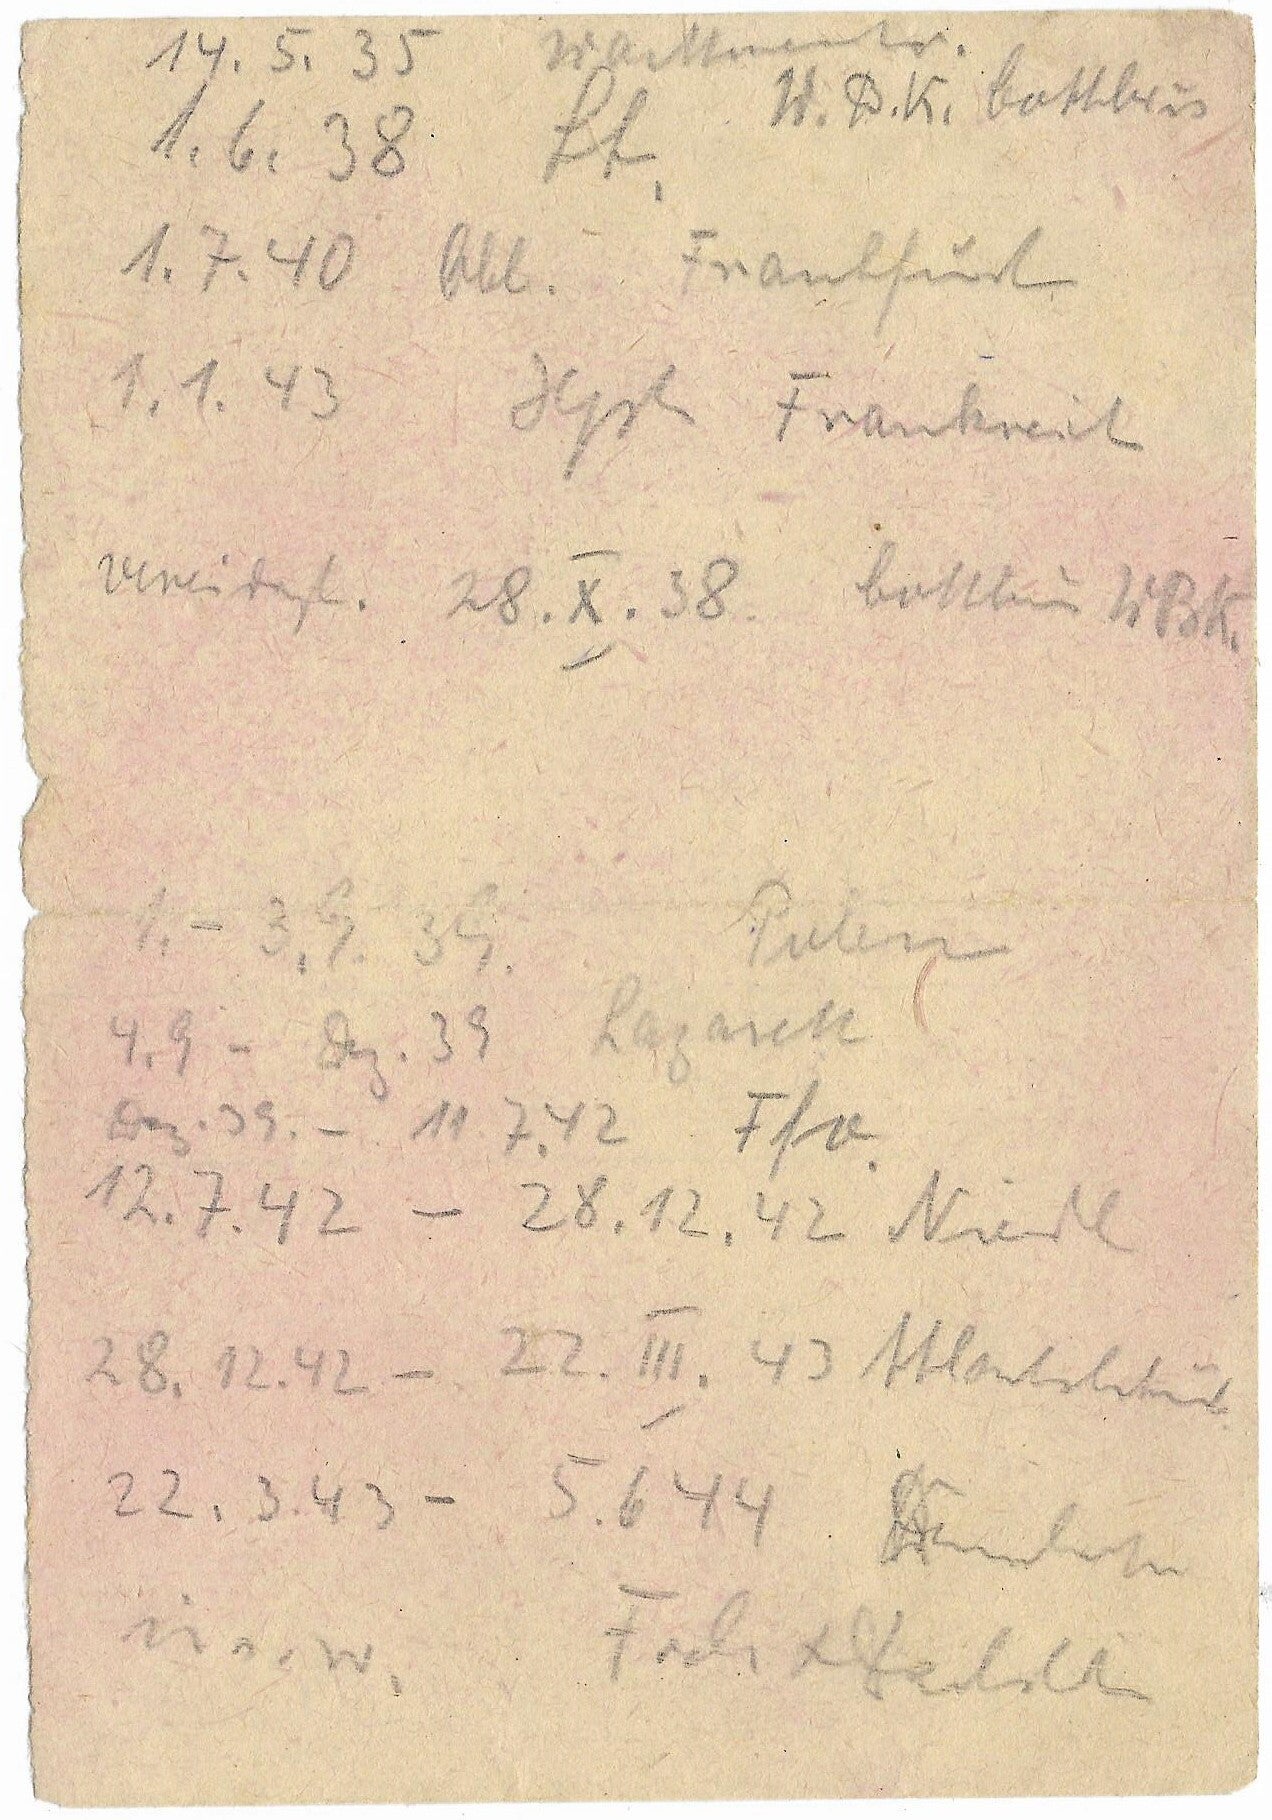 14. 5. 35 Wachtmeister.
1. 6. 38 Lt. W.B.K. Cottbus
1. 7. 40 Obl. Frankfurt
1. 1. 43 Hptm Frankreich
vereidigt. 28. X. 38. Cottbus WBK.
1. – 3. 9. 39. Polen
4. 9 – Dez. 39 Lazarett
Dez. 39. – 11. 7. 42 Ffo.
12. 7. 42 – 28. 12. 42
28. 12. 42 – 22. III. 43
22. 3. 43 – 5. 6 44
u. s. w.